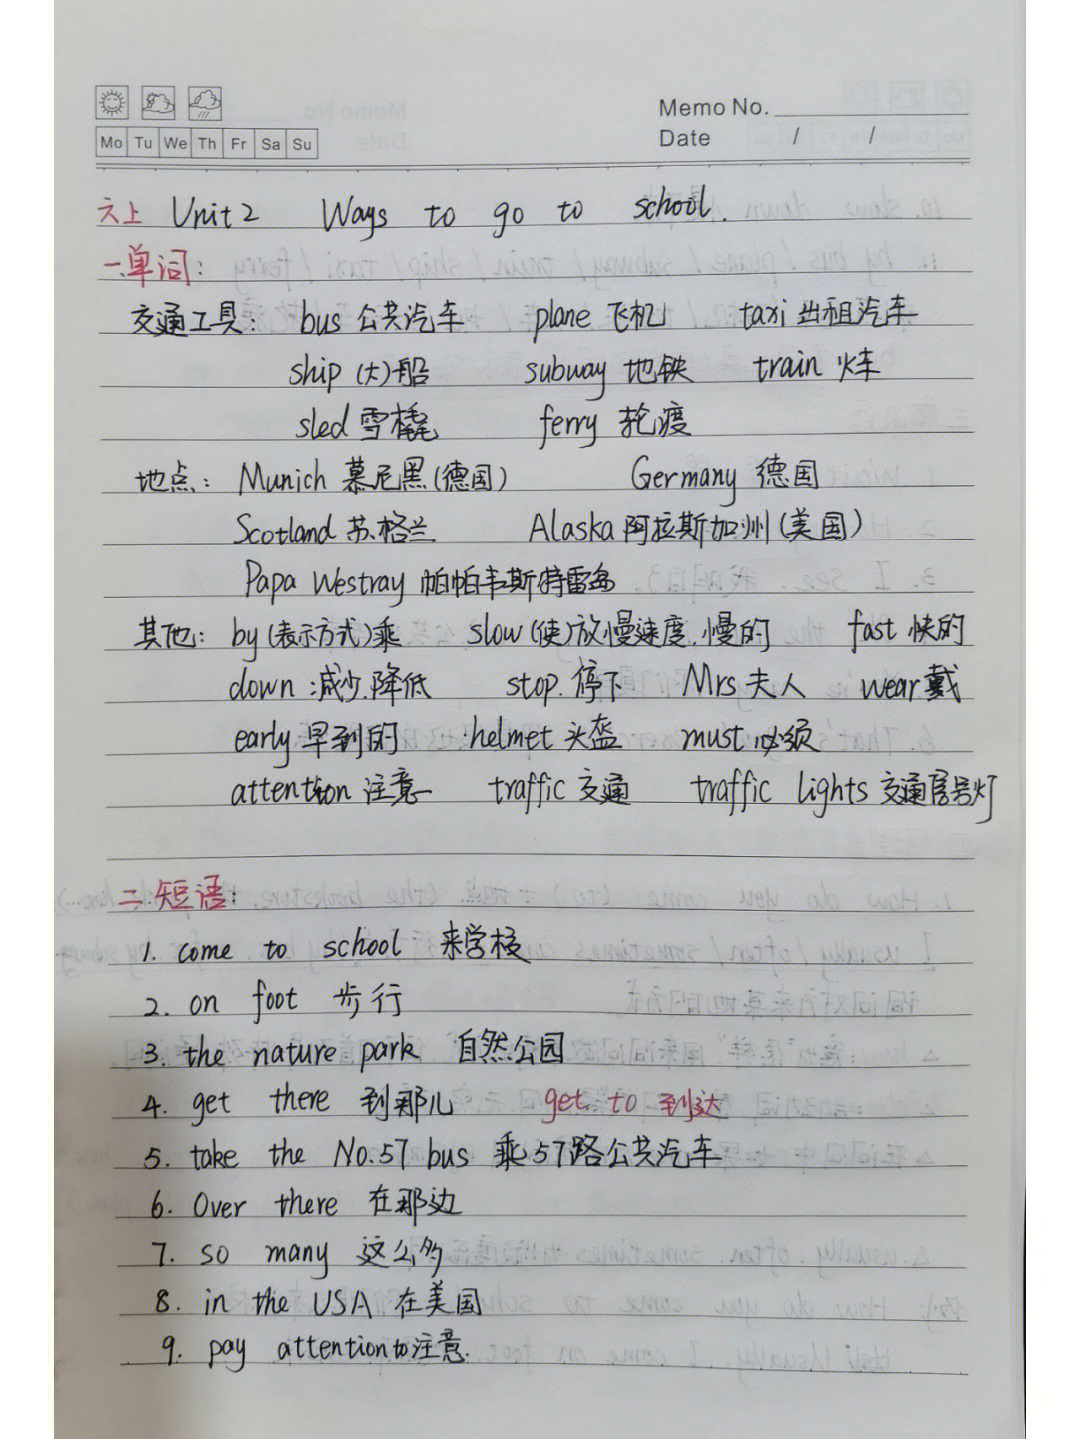 Memo No.
Mo Tu We Th Fr Sa Su
Date / /
六上 Unit 2 Ways to go to school.
一.单词:
交通工具: bus 公共汽车 plane 飞机 taxi 出租汽车
ship (大)船 subway 地铁 train 火车
sled 雪橇 ferry 轮渡
地点: Munich 慕尼黑(德国) Germany 德国
Scotland 苏格兰 Alaska 阿拉斯加州(美国)
Papa Westray 帕帕韦斯特雷岛
其他: by (表示方式)乘 slow (使)放慢速度.慢的 fast 快的
down :减少.降低 stop. 停下 Mrs 夫人 wear 戴
early 早到的 helmet 头盔 must 必须
attention 注意 traffic 交通 traffic lights 交通信号灯
二.短语:
1. come to school 来学校
2. on foot 步行
3. the nature park 自然公园
4. get there 到那儿 get to 到达
5. take the No.57 bus 乘57路公共汽车
6. Over there 在那边
7. so many 这么多
8. in the USA 在美国
9. pay attention to 注意.